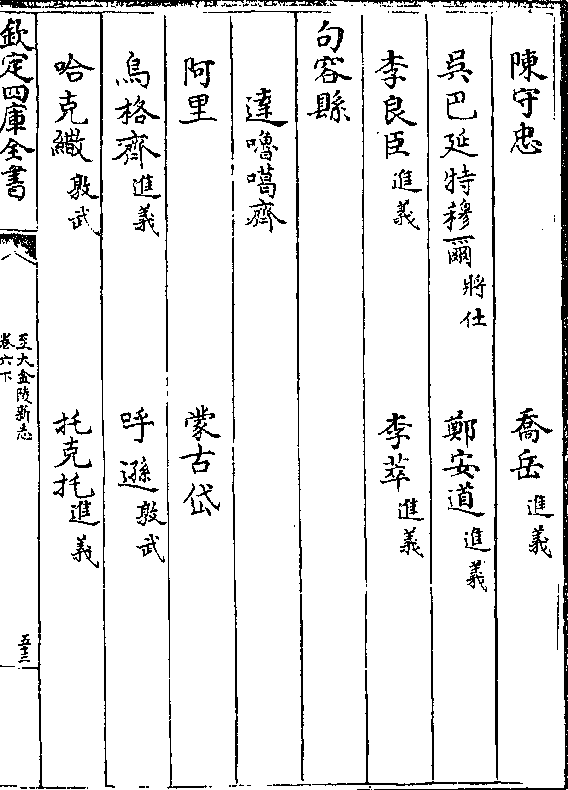 陳守忠　喬岳進義
吳巴延特穆爾將仕　鄭安道進義
李良臣進義　李萃進義
句容縣
達嚕噶齊
阿里　蒙古岱
烏格齊進義　呼遜敦武
哈克繖敦武　托克托進義
欽定四庫全書
至大金陵新志
卷六下
五十三